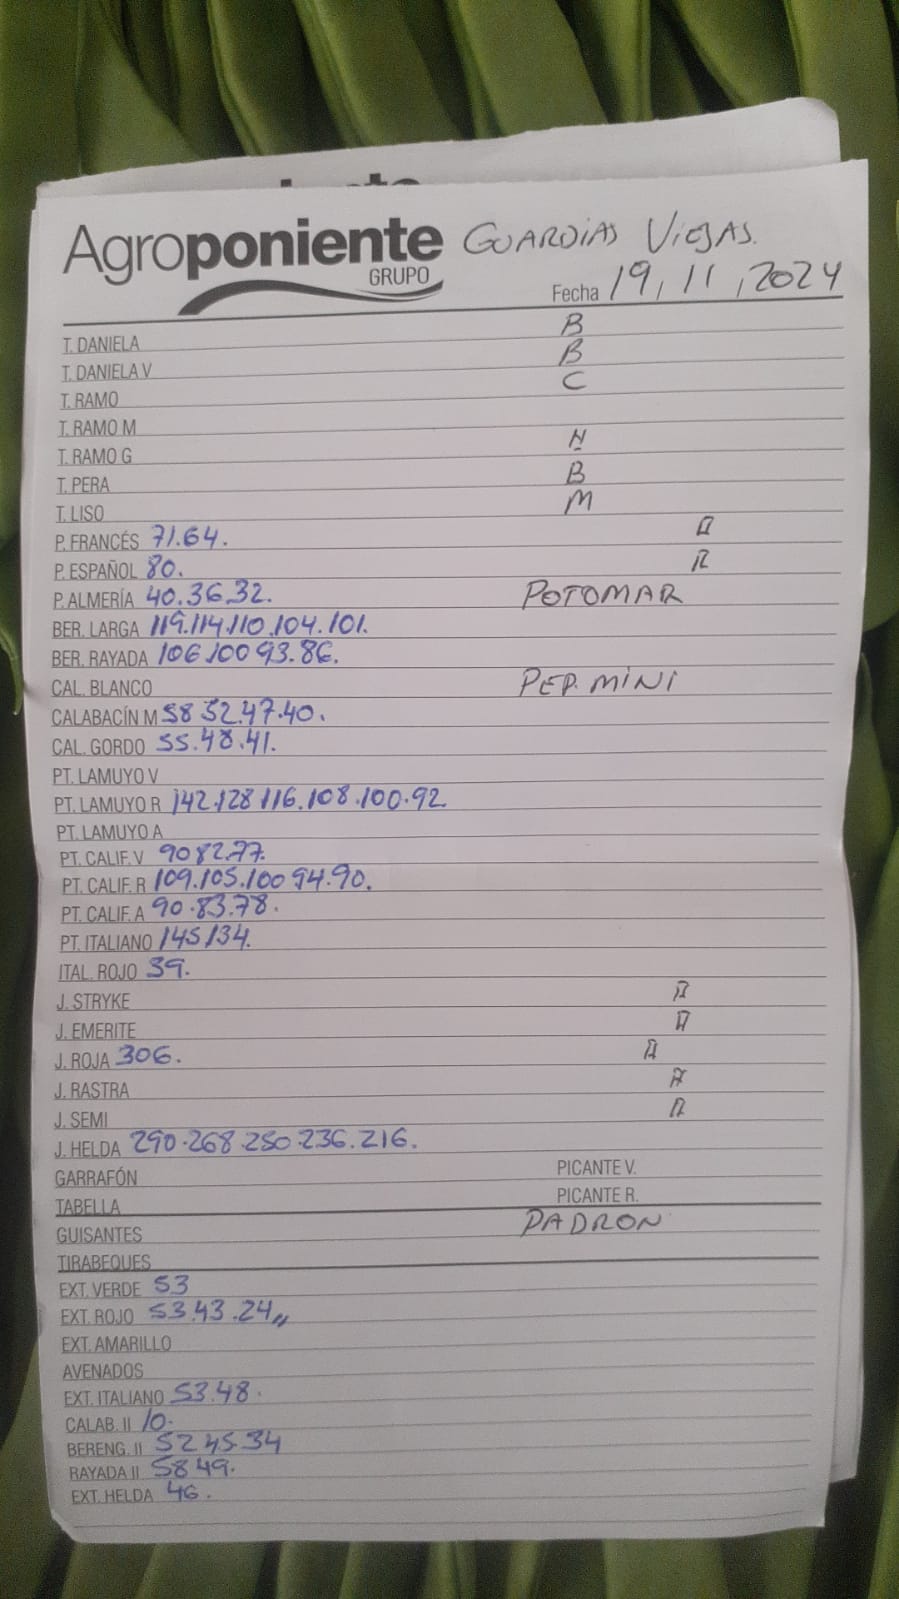 Agroponiente GUARDIAS VIEJAS.
GRUPO
Fecha 19, 11, 2024
T. DANELA B
T. DANIELA V B
T. RAMO C
T. RAMO M
T. RAMO G N
T. PERA B
T. LISO M
P. FRANCÉS 71.64. R
P. ESPAÑOL 80. R
P. ALMERÍA 40.36.32. POTOMAR
BER. LARGA 119.114.110.104.101.
BER. RAYADA 106.100 93.86.
CAL. BLANCO PEP. MINI
CALABACÍN M 58 52.47.40.
CAL. GORDO 55.48.41.
PT. LAMUYO V
PT. LAMUYO R 142.128 116.108.100.92.
PT. LAMUYO A
PT. CALIF. V 90 82.77.
PT. CALIF. R 109.105.100 94.90.
PT. CALIF. A 90.83.78.
PT. ITALIANO 145 134.
ITAL. ROJO 39.
J. STRYKE R
J. EMERITE R
J. ROJA 306. R
J. RASTRA R
J. SEMI R
J. HELDA 290.268.250.236.216.
GARRAFÓN PICANTE V.
TABELLA PICANTE R.
GUISANTES PADRON
TIRABEQUES
EXT. VERDE 53
EXT. ROJO 53.43.24,,
EXT. AMARILLO
AVENADOS
EXT. ITALIANO 53.48.
CALAB. II 10.
BERENG. II 52 45.34
RAYADA II 58 49.
EXT. HELDA 46.